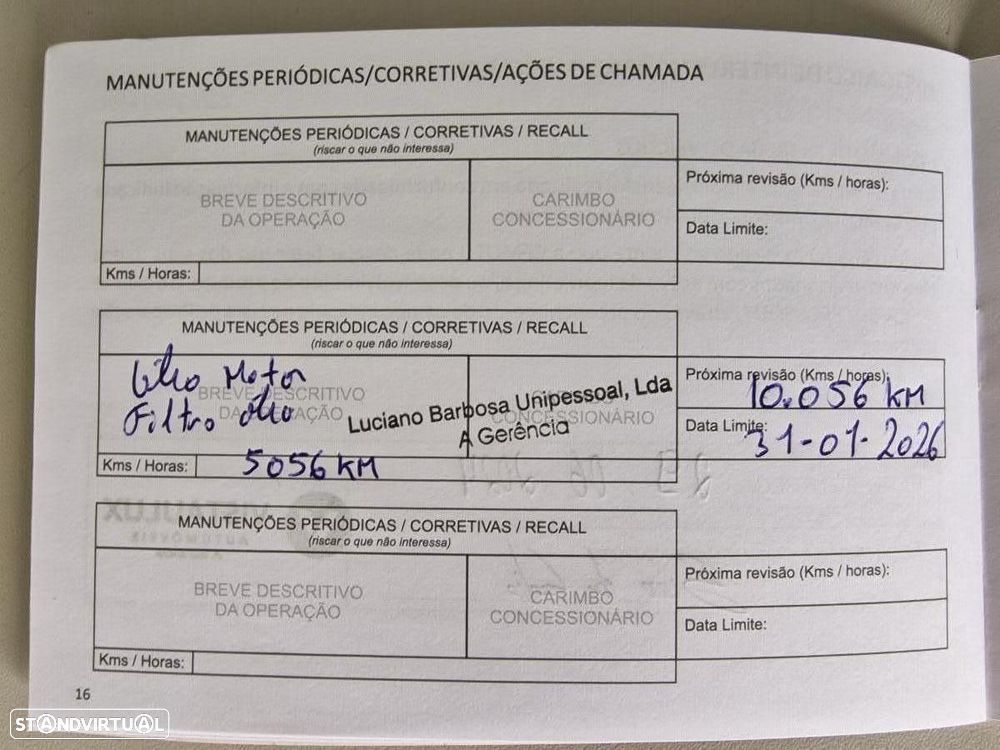 MANUTENÇÕES PERIÓDICAS/CORRETIVAS/AÇÕES DE CHAMADA
MANUTENÇÕES PERIÓDICAS / CORRETIVAS / RECALL
(riscar o que não interessa)
BREVE DESCRITIVO
DA OPERAÇÃO
CARIMBO
CONCESSIONÁRIO
Próxima revisão (Kms / horas):
Data Limite:
Kms / Horas:
MANUTENÇÕES PERIÓDICAS / CORRETIVAS / RECALL
(riscar o que não interessa)
Motor
BREVE DESCRITIVO
Filtro óleo
DA OPERAÇÃO
Luciano Barbosa Unipessoal, Lda
CONCESSIONÁRIO
A Gerência
Próxima revisão (Kms / horas):
10.056 KM
Data Limite:
31-01-2026
Kms / Horas: 5056 KM
MANUTENÇÕES PERIÓDICAS / CORRETIVAS / RECALL
(riscar o que não interessa)
BREVE DESCRITIVO
DA OPERAÇÃO
CARIMBO
CONCESSIONÁRIO
Próxima revisão (Kms / horas):
Data Limite:
Kms / Horas:
16
STANDVIRTUAL